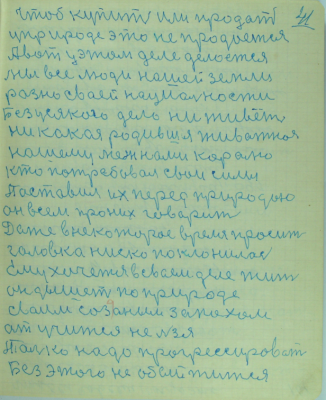 41
чтоб купить или продать
у природе это не продается
А вот у этом деле делается
мы все люди нашей земли
разно своей национности
Без усякого дело ни живет
никокая родившя животная
нашему межнами
кто потребовал свои силы
Поставил их перед природою
он всем проних говарит
Даже в некоторое время просит
головка ниско поклонилас
Ему хочется всваем деле жит
он дышет по природе
сваим
от учится не лзя
Только надо прогрессироват
Без этого не обойтится